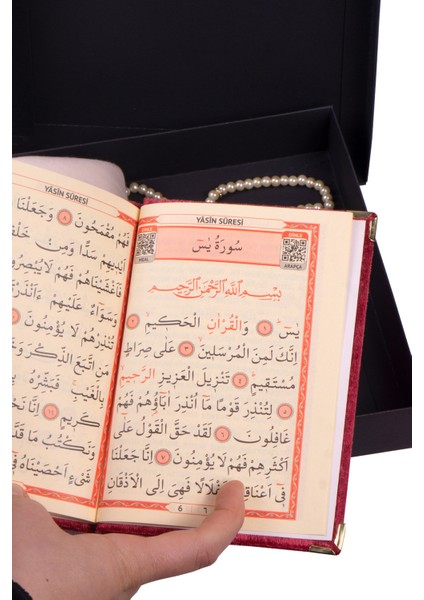 YÂSÎN SÛRESİ
DİNLE
سُورَةُ يٰسٓ
ARAPÇA
MEAL
بِسْمِ اللّٰهِ الرَّحْمٰنِ الرَّحِيمِ
يٰسٓ ١ وَالْقُرْاٰنِ الْحَكِيمِ ٢
اِنَّكَ لَمِنَ الْمُرْسَلِينَ ٣ عَلٰى صِرَاطٍ
مُسْتَقِيمٍ ٤ تَنْزِيلَ الْعَزِيزِ الرَّحِيمِ
٥ لِتُنْذِرَ قَوْمًا مَٓا اُنْذِرَ اٰبَٓاؤُ۬هُمْ فَهُمْ
غَافِلُونَ ٦ لَقَدْ حَقَّ الْقَوْلُ عَلٰٓى
اَكْثَرِهِمْ فَهُمْ لَا يُؤْمِنُونَ ٧ اِنَّا جَعَلْنَا
فِٓى اَعْنَاقِ اَغْلَالًا فَهِىَ اِلَى الْاَذْقَانِ
6 ٦
YÂSÎN SÛRESİ
فَهُمْ مُقْمَحُونَ ٨ وَجَعَلْنَا
اَيْدِيهِمْ سَدًّا وَمِنْ
فَاَغْشَيْنَاهُمْ فَهُمْ لَا
وَسَوَٓاءٌ عَلَيْهِمْ
تُنْذِرْهُمْ لَا يُؤْمِنُونَ
مَنِ اتَّبَعَ الذِّكْرَ وَ
بِالْغَيْبِۚ فَبَشِّرْهُ
كَرِيمٍ ١١ اِنَّا
وَنَكْتُبُ مَا
شَيْءٍ اَحْصَيْنَاهُ